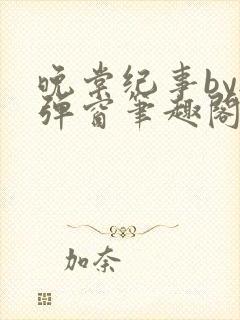 晚棠纪事by
弹窗笔趣阁
加奈